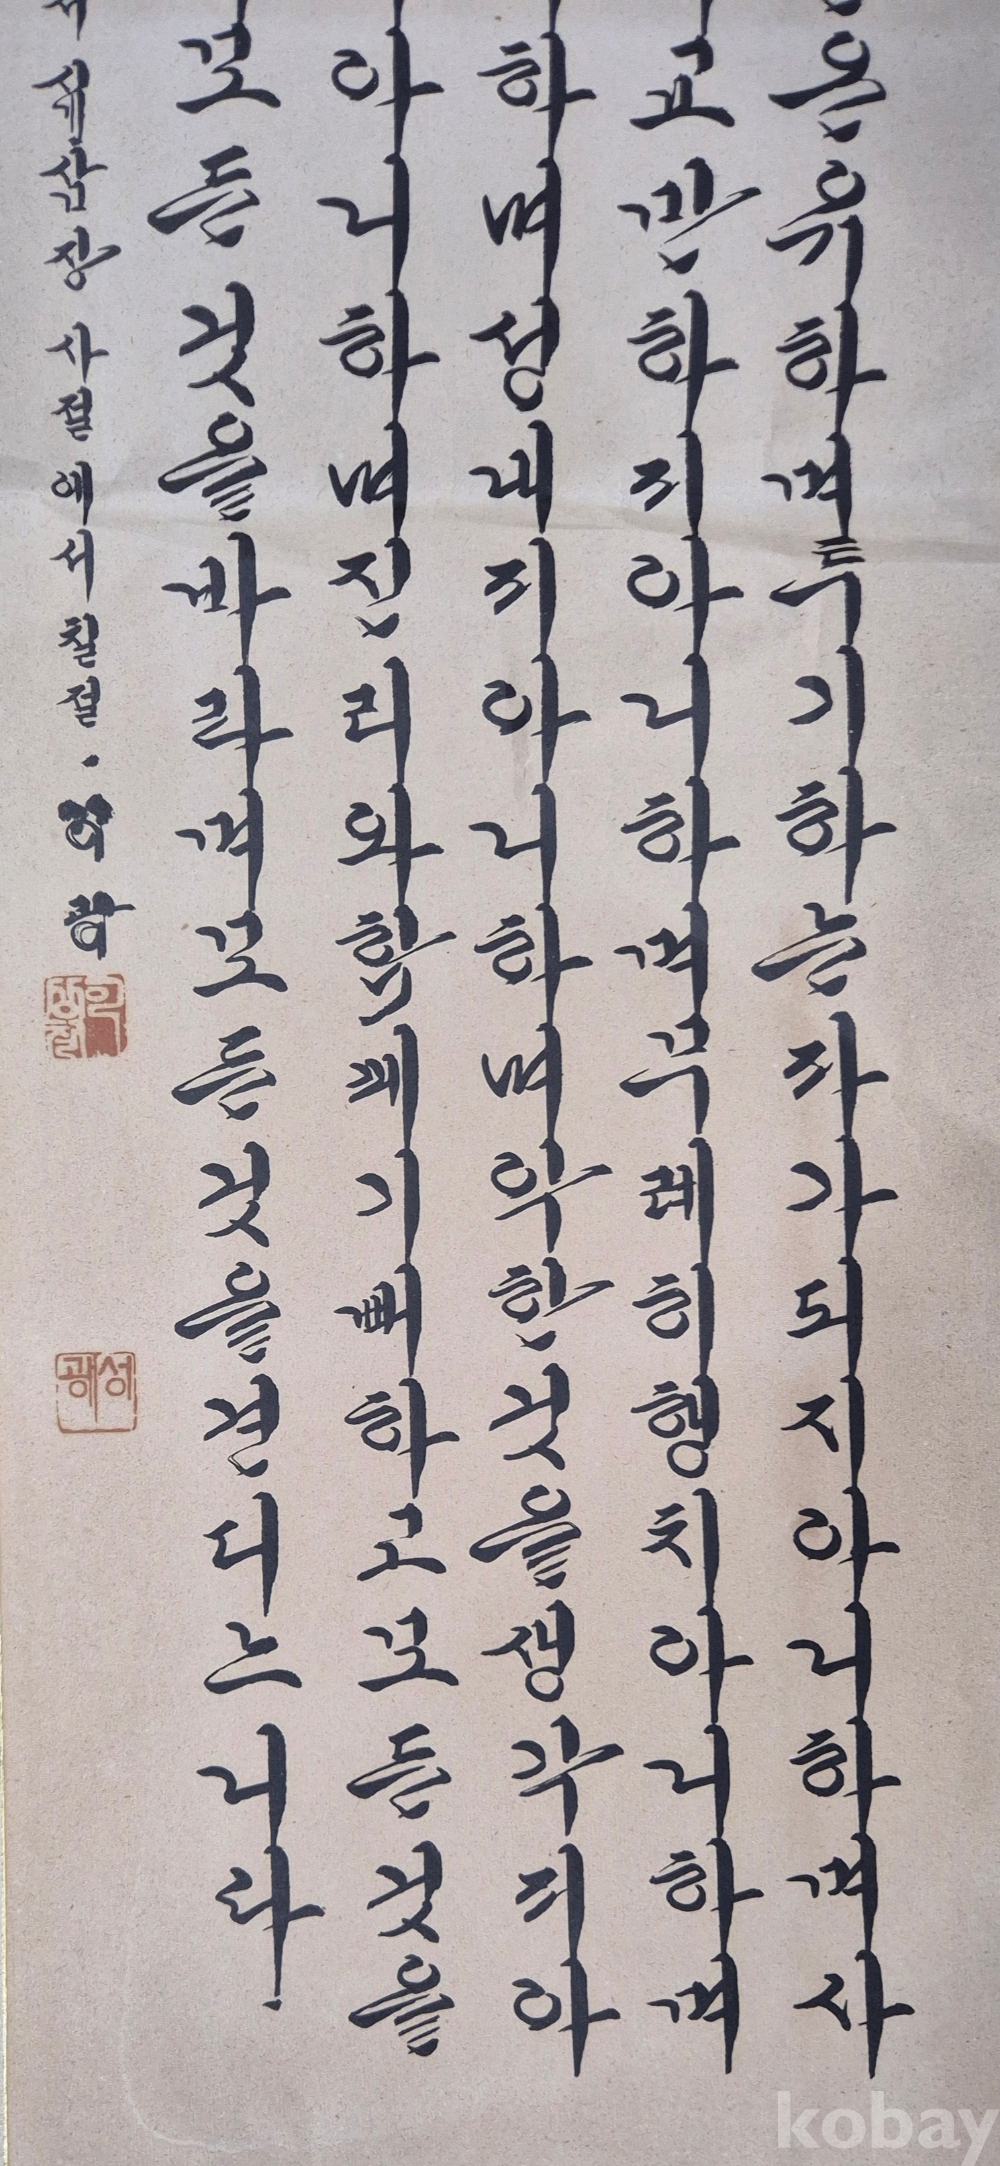 온유하며투기하는자가되지아니하며사
교만하지아니하며무례히행치아니하며
하며성내지아니하며악한것을생각지아
아니하며진리와함께기뻐하고모든것을
모든것을바라며모든것을견디느니라.
서 십삼장 사절에서 칠절.
kobay